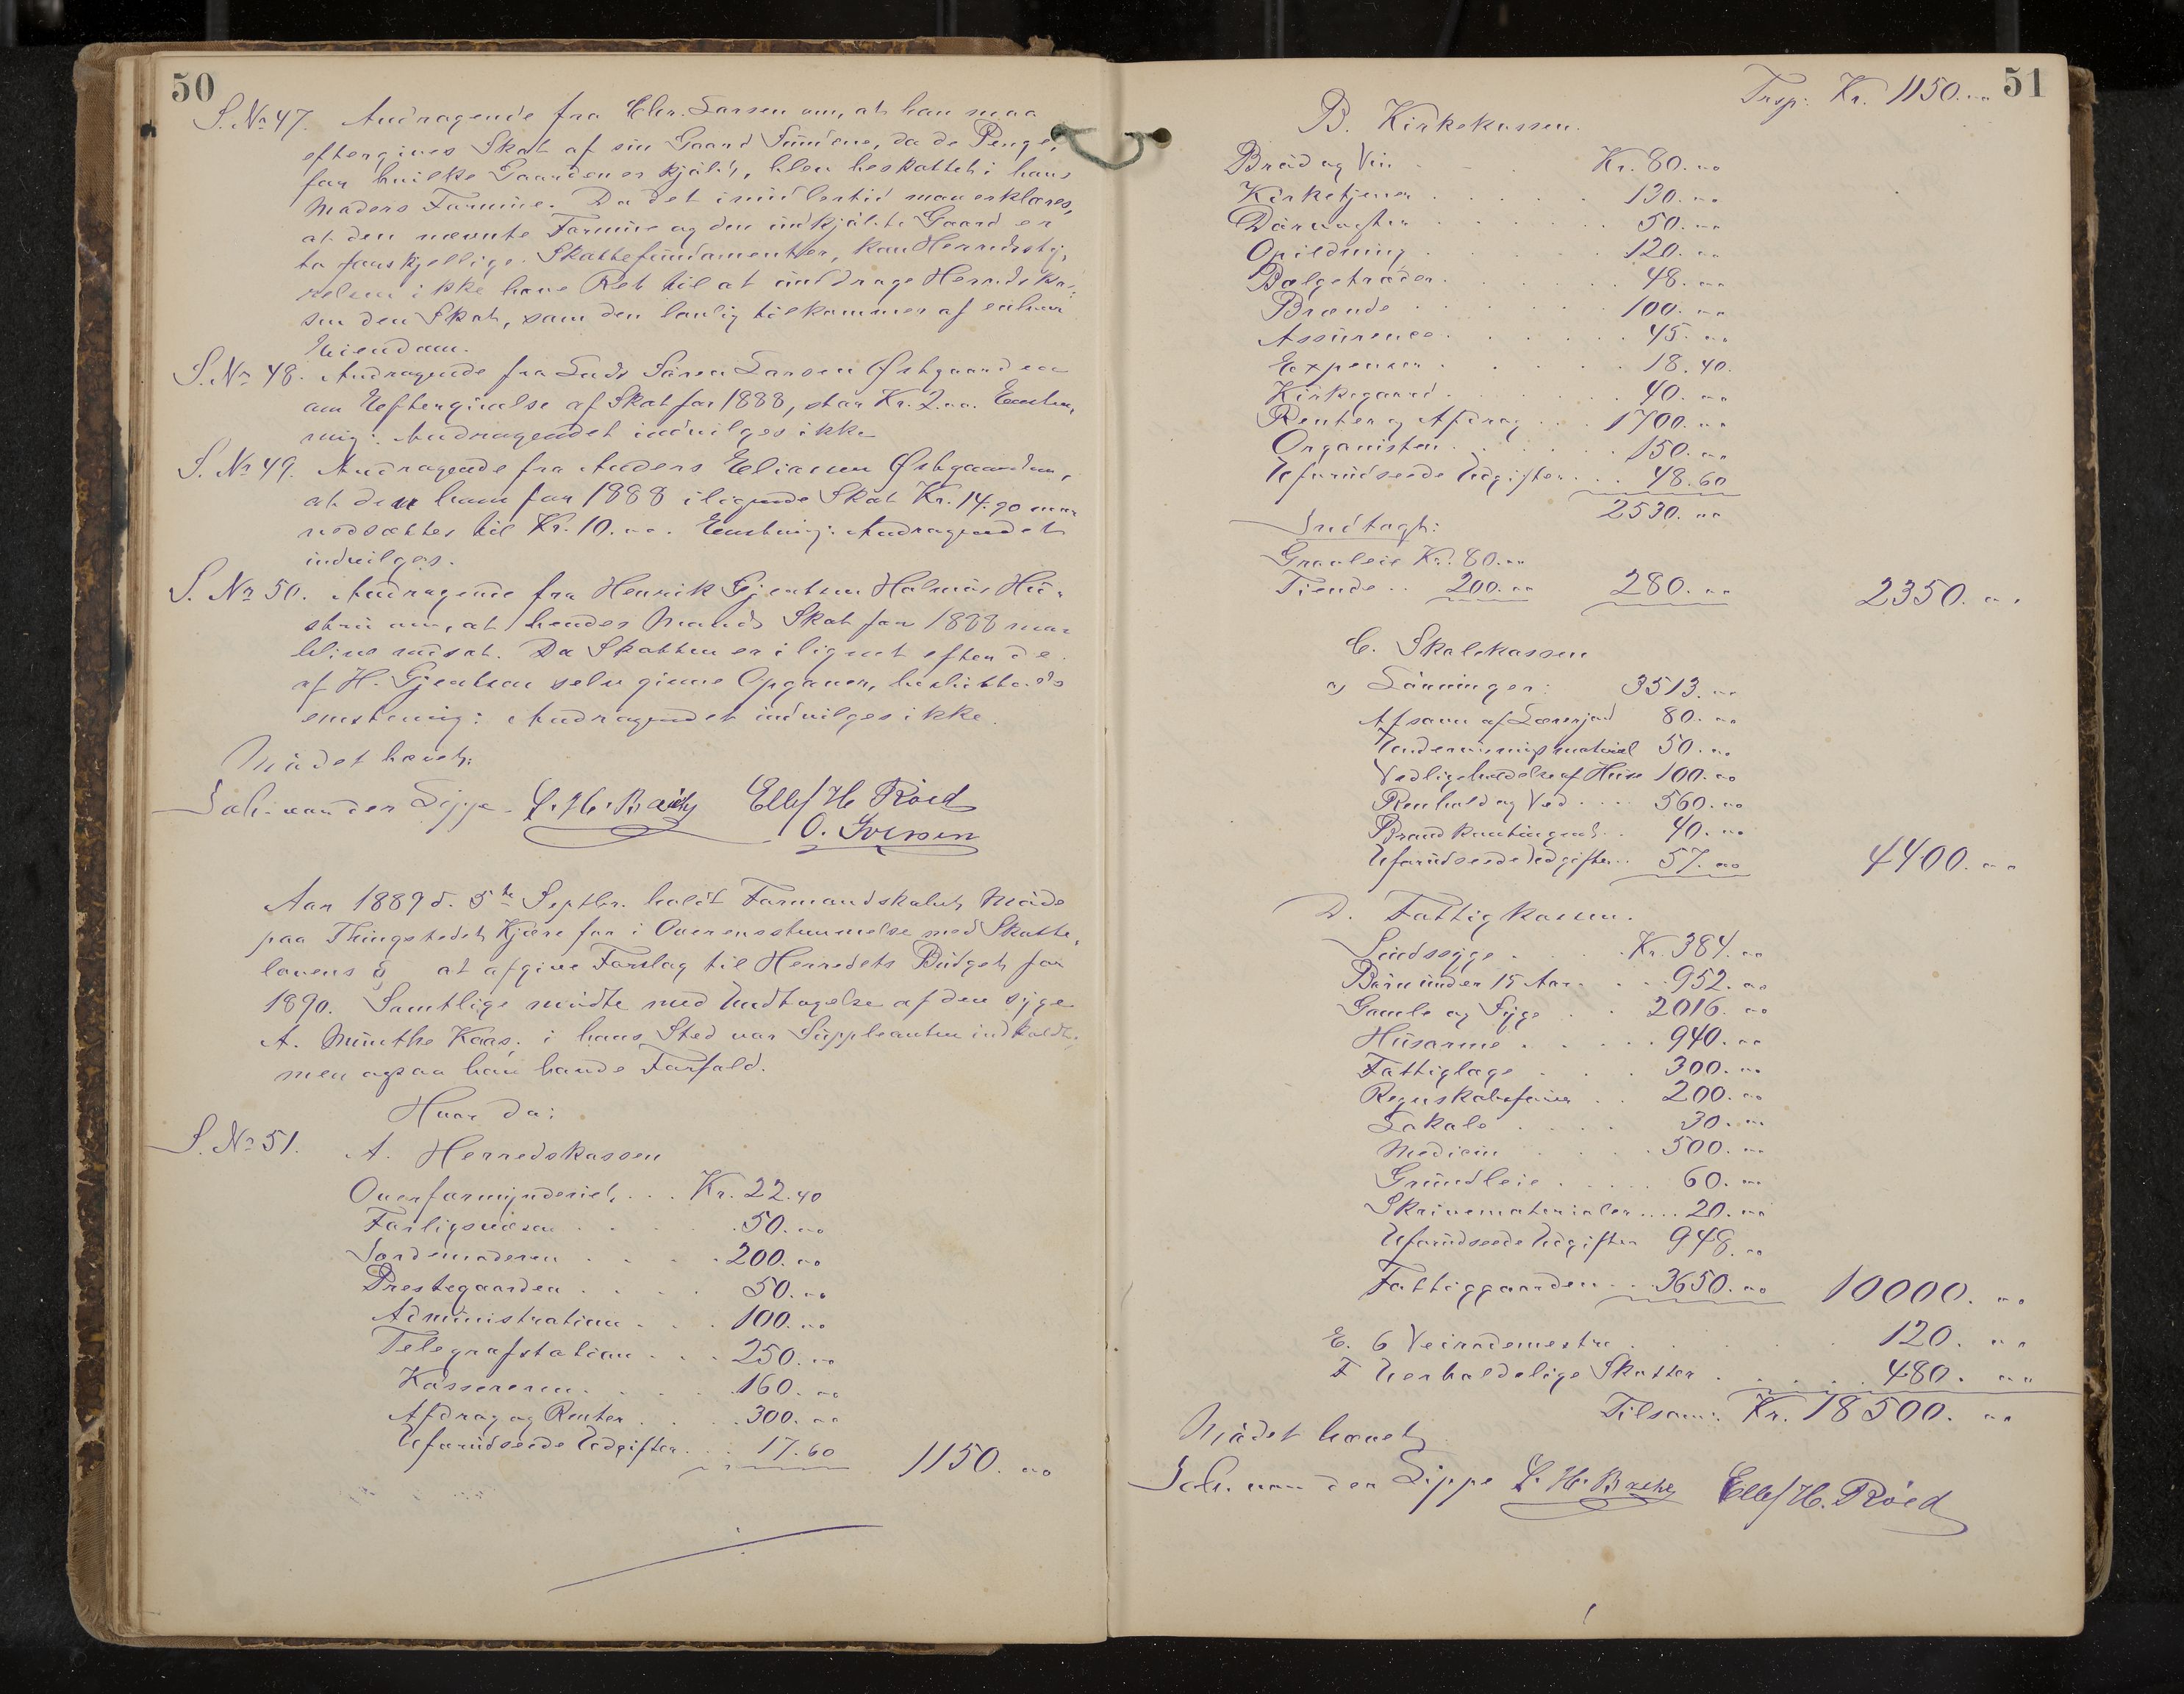 50
S. No 47. Andragende fra Chr. Larsen om, at han maa
eftergives Skat af sin Gaard Sundene, da de Penge,
for hvilke Gaarden er kjøbt, blev beskattet i hans
Moders Formue. Da det imidlertid maa erklæres,
at den nævnte Formue og den indkjøbte Gaard er
to forskjellige Skattefundamenter, kan Herredssty,
relsen ikke have Ret til at unddrage Herredskas,
sen den Skat, som den lovlig tilkommer af enhver
Eiendom.
S. No 48. Andragende fra Lads Søren Larsen Østgaarden
om Eftergivelse af Skat for 1888, stor Kr. 2.00. Enstem,
mig: Andragendet indvilges ikke
S. No 49. Andragende fra Anders Eliassen Østgaarden,
at den ham for 1888 ilignede Skat Kr. 14.90 maa
nedsættes til Kr. 10.00. Enstemig: Andragendet
indvilges.
S. No 50. Andragende fra Henrik Gjentsen Holmös Hu,
stru om, at hendes Mands Skat for 1888 maa
blive nedsat. Da Skatten er ilignet efter de
af H. Gjentsen selv givne Opgaver, besluttedes
enstemig: Andragendet indvilges ikke.
Mödet hævet:
Joh. van der Lippe L. H. Bache Ellef H Röed
O. Iversen
Aar 1889 d. 5te Septbr. holdt Formandskabet Möde
paa Thingstedet Kjære for i Overensstemmelse med Skatte,
lovens § at afgive Forslag til Herredets Budget for
1890. Samtlige mödte med Undtagelse af den syge
A. Munthe Kaas; i hans Sted var Suppleanten indkaldt,
men ogsaa han havde Forfald.
Hvor da:
S. No 51. A. Herredskassen
Overformynderiet . . . Kr. 22.40
Forligsvæsen . . . . . 50.00
Jordemoderen . . . . 200.00
Prestegaarden . . . . 50.00
Administration . . . 100.00
Telegrafstation . . . 250.00
Kassereren . . . . . 160.00
Afdrag og Renter . . . . 300.00
Uforudseede Udgifter . . . 17.60 1150.00
51
Trsp: Kr. 1150.00
B. Kirkekassen.
Bröd og Vin . . . Kr. 80.00
Kirketjener . . . . . 130.00
Dörvogter . . . . . . 50.00
Opildning . . . . . 120.00
Bælgetræder . . . . . . 48.00
Brænde . . . . . . 100.00
Assurence . . . . . . 45.00
Expenser . . . . . 18.40
Kirkegaard . . . . . . 40.00
Renter og Afdrag . . . 1700.00
Organisten . . . . . . 150.00
Uforudseede Udgifter . . . 48.60
2530.00
Indtægt:
Gravleie Kr. 80.00
Tiende . . 200.00 280.00 2350.00
C. Skolekassen
a, Lönninger: 3513.00
Afsavn af Lærerjord 80.00
Undervisningsmateriel 50.00
Vedligeholdelse af Huse 100.00
Renhold og Ved . . . . 560.00
Brandkontingent . . 40.00
Uforudseede Udgifter . . 57.00 4400.00
D. Fattigkassen.
Sindssyge . . . . Kr. 384.00
Börn under 15 Aar . . . 952.00
Gamle og Syge . . 2016.00
Husarme . . . . . . 940.00
Fattiglæge . . . . 300.00
Regnskabsförer . . 200.00
Lokale . . . . . 30.00
Medicin . . . . . 500.00
Grundleie . . . . . 60.00
Skrivematerialer . . . . 20.00
Uforudseede Udgifter 948.00
Fattiggaarden . . . 3650.00 10000.00
E. 6 Veirodemestre . . . . . . 120.00
F Uerholdelige Skatter . . . . . 480.00
Tilsam: Kr. 18500.00
Mödet hævet
Joh. van der Lippe L. H. Bache Ellef H. Röed